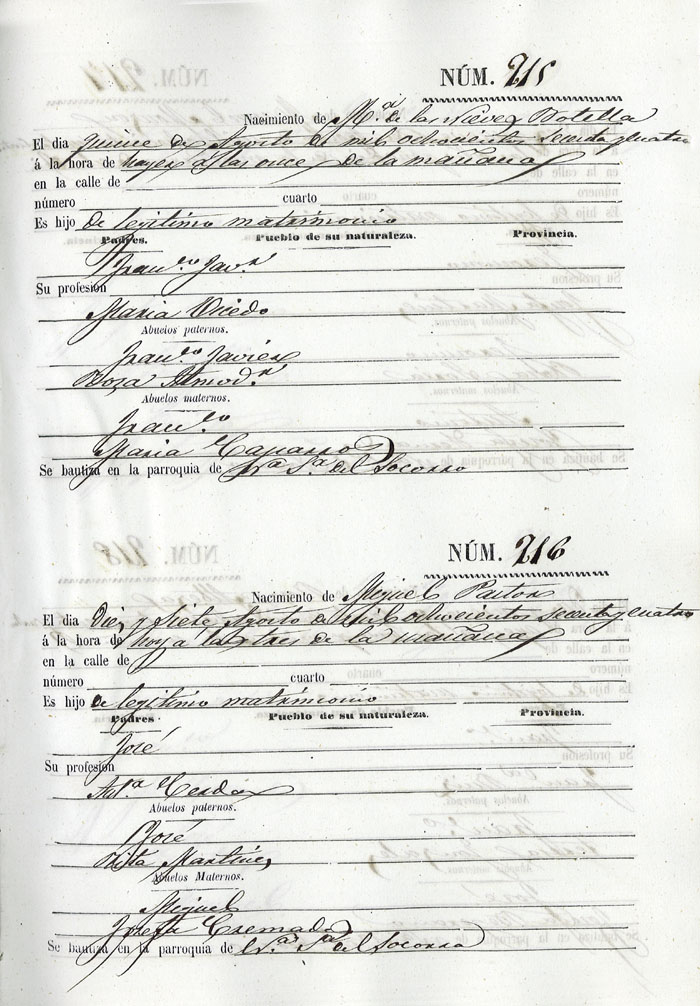 NÚM. 215
Nacimiento de M.ª de las Nieves Botella
El dia quince de Agosto de mil ochocientos sesenta y cuatro
á la hora de hoyer a las once de la mañana
en la calle de
número cuarto
Es hijo de legitimo matrimonio
Padres. Pueblo de su naturaleza. Provincia.
Fran.co Jav.r
Su profesión
Maria Oviedo
Abuelos paternos.
Fran.co Javier
Roza Almod.r
Abuelos maternos.
Fran.co
Maria Caparros
Se bautiza en la parroquia de Nra Sra del Socorro
NÚM. 216
Nacimiento de Miguel Pastor
El dia Diez y Siete Agosto de mil ochocientos sesenta y cuatro
á la hora de hoy a las tres de la mañana
en la calle de
número cuarto
Es hijo de legitimo matrimonio
Padres Pueblo de su naturaleza. Provincia.
José
Su profesión
Ant.a Cerdá
Abuelos paternos.
José
Rita Martinez
Abuelos Maternos.
Miguel
Josefa Cremades
Se bautiza en la parroquia de N.ra Sra del Socorro